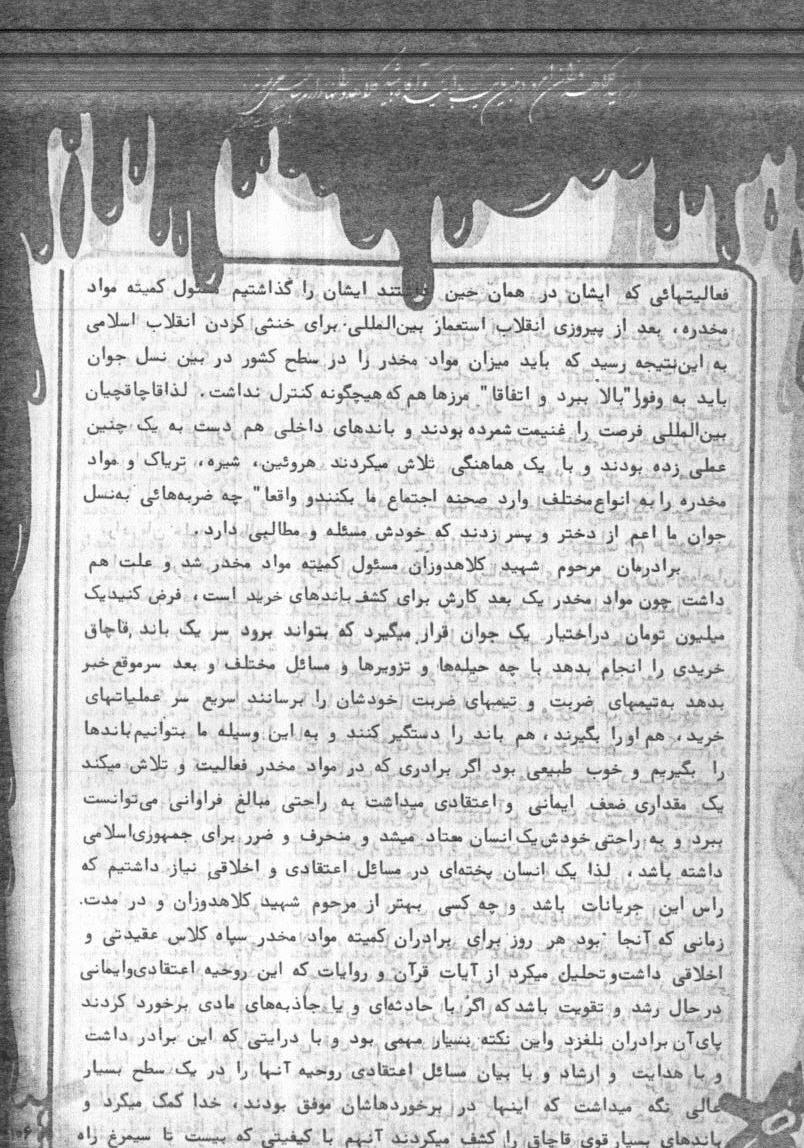 فعالیتهائی که ایشان در همان حین داشتند ایشان را گذاشتیم مسئول کمیته مواد
مخدره، بعد از پیروزی انقلاب استعمار بین‌المللی برای خنثی کردن انقلاب اسلامی
به این‌نتیجه رسید که باید میزان مواد مخدر را در سطح کشور در بین نسل جوان
باید به وفور"بالا ببرد و اتفاقا" مرزها هم که هیچگونه کنترل نداشت. لذاقاچاقچیان
بین‌المللی فرصت را غنیمت شمرده بودند و باندهای داخلی هم دست به یک چنین
عملی زده بودند و با یک هماهنگی تلاش میکردند هروئین، شیره، تریاک و مواد
مخدره را به انواع مختلف وارد صحنه اجتماع ما بکنندو واقعا" چه ضربه‌هائی به‌نسل
جوان ما اعم از دختر و پسر زدند که خودش مسئله و مطالبی دارد.
برادرمان مرحوم شهید کلاهدوزان مسئول کمیته مواد مخدر شد و علت هم
داشت چون مواد مخدر یک بعد کارش برای کشف باندهای خرید است، فرض کنیدیک
میلیون تومان دراختیار یک جوان قرار میگیرد که بتواند برود سر یک باند قاچاق
خریدی را انجام بدهد با چه حیله‌ها و تزویرها و مسائل مختلف و بعد سرموقع خبر
بدهد به‌تیمهای ضربت و تیمهای ضربت خودشان را برسانند سریع سر عملیاتهای
خرید، هم اورا بگیرند، هم باند را دستگیر کنند و به این وسیله ما بتوانیم باندها
را بگیریم و خوب طبیعی بود اگر برادری که در مواد مخدر فعالیت و تلاش میکند
یک مقداری ضعف ایمانی و اعتقادی میداشت به راحتی مبالغ فراوانی می‌توانست
ببرد و به راحتی خودش یک انسان معتاد میشد و منحرف و ضرر برای جمهوری‌اسلامی
داشته باشد، لذا یک انسان پخته‌ای در مسائل اعتقادی و اخلاقی نیاز داشتیم که
راس این جریانات باشد و چه کسی بهتر از مرحوم شهید کلاهدوزان و در مدت.
زمانی که آنجا بود هر روز برای برادران کمیته مواد مخدر سپاه کلاس عقیدتی و
اخلاقی داشت‌وتحلیل میکرد از آیات قرآن و روایات که این روحیه اعتقادی‌وایمانی
در حال رشد و تقویت باشد که اگر با حادثه‌ای و یا جاذبه‌های مادی برخورد کردند
پای‌آن برادران نلغزد واین نکته بسیار مهمی بود و با درایتی که این برادر داشت
و با هدایت و ارشاد و با بیان مسائل اعتقادی روحیه آنها را در یک سطح بسیار
عالی نگه میداشت که اینها در برخوردهاشان موفق بودند، خدا کمک میکرد و
باندهای بسیار قوی قاچاق را کشف میکردند آنهم با کیفیتی که بیست تا سیمرغ راه